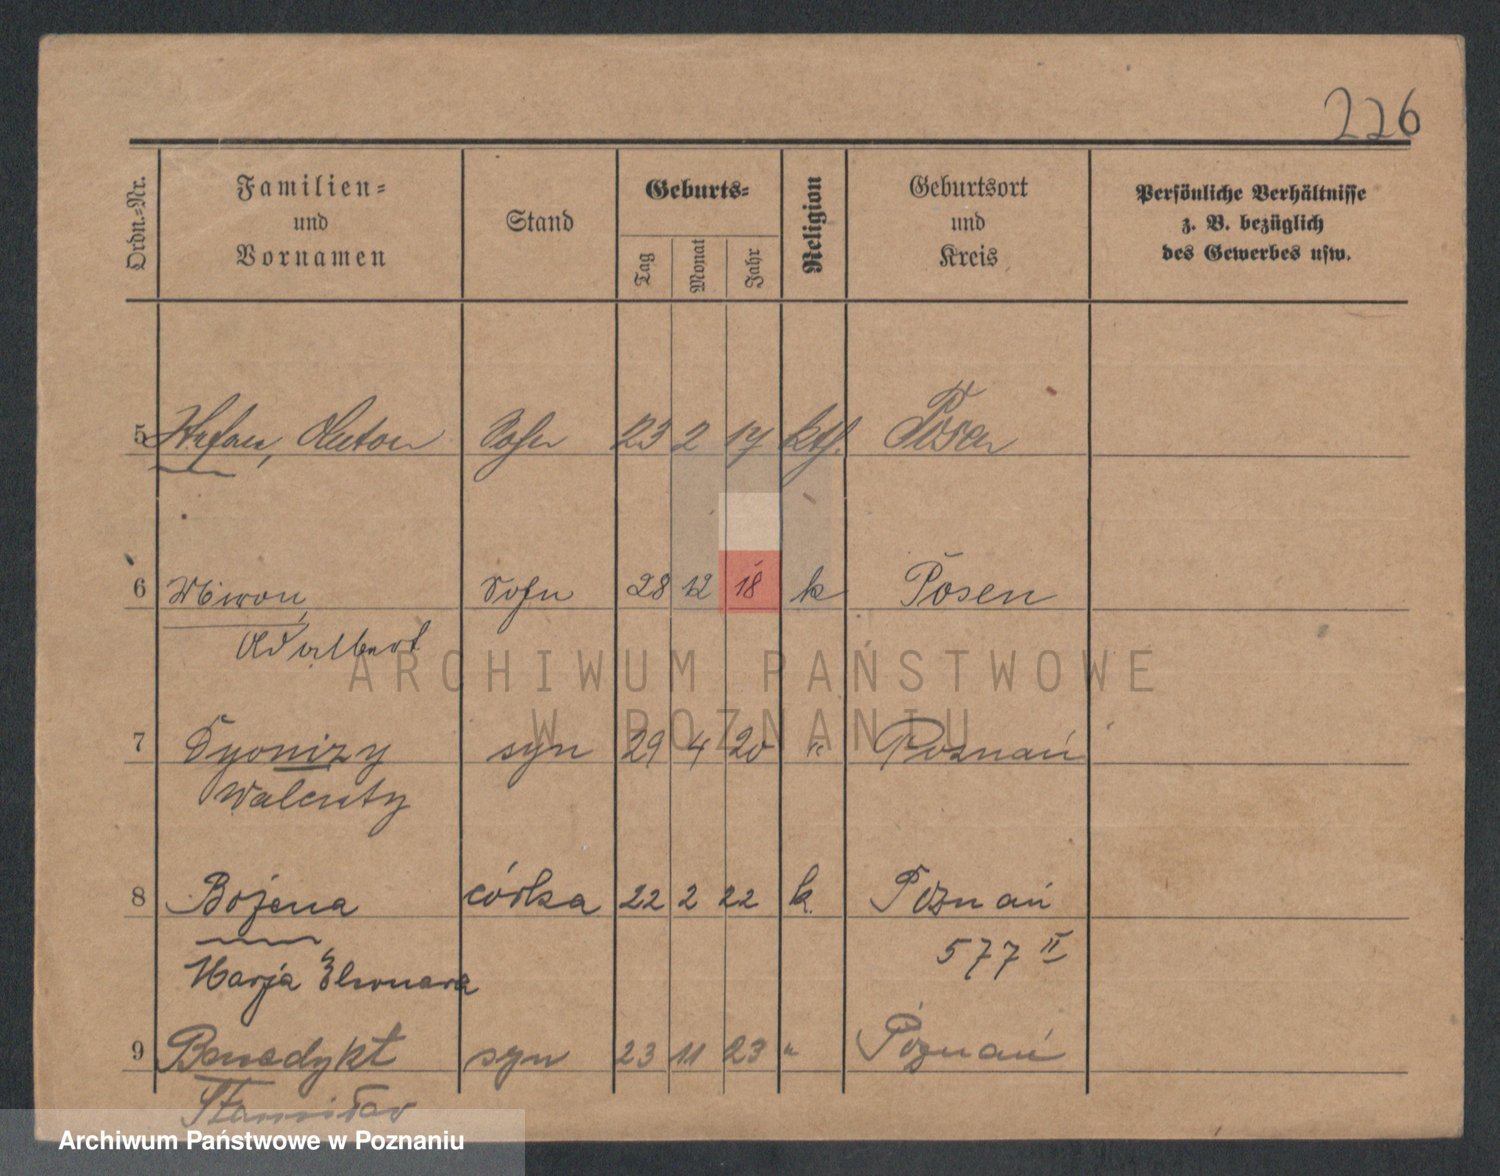 226
Ordn.-Nr.
Familien-
und
Vornamen
Stand
Geburts-
Tag
Monat
Jahr
Religion
Geburtsort
und
Kreis
Persönliche Verhältnisse
z. B. bezüglich
des Gewerbes usw.
5 Stefan, Anton Sohn 23 2 17 kth. Posen
6 Miron, Sohn 28 12 18 k Posen
Adalbert
ARCHIWUM PAŃSTWOWE
W POZNANIU
7 Dyonizy syn 29 4 20 " Poznań
Walenty
8 Bożena córka 22 2 22 k. Poznań
577 II
Marja Eleonara
9 Benedykt syn 23 11 23 " Poznań
Stanisław
Archiwum Państwowe w Poznaniu